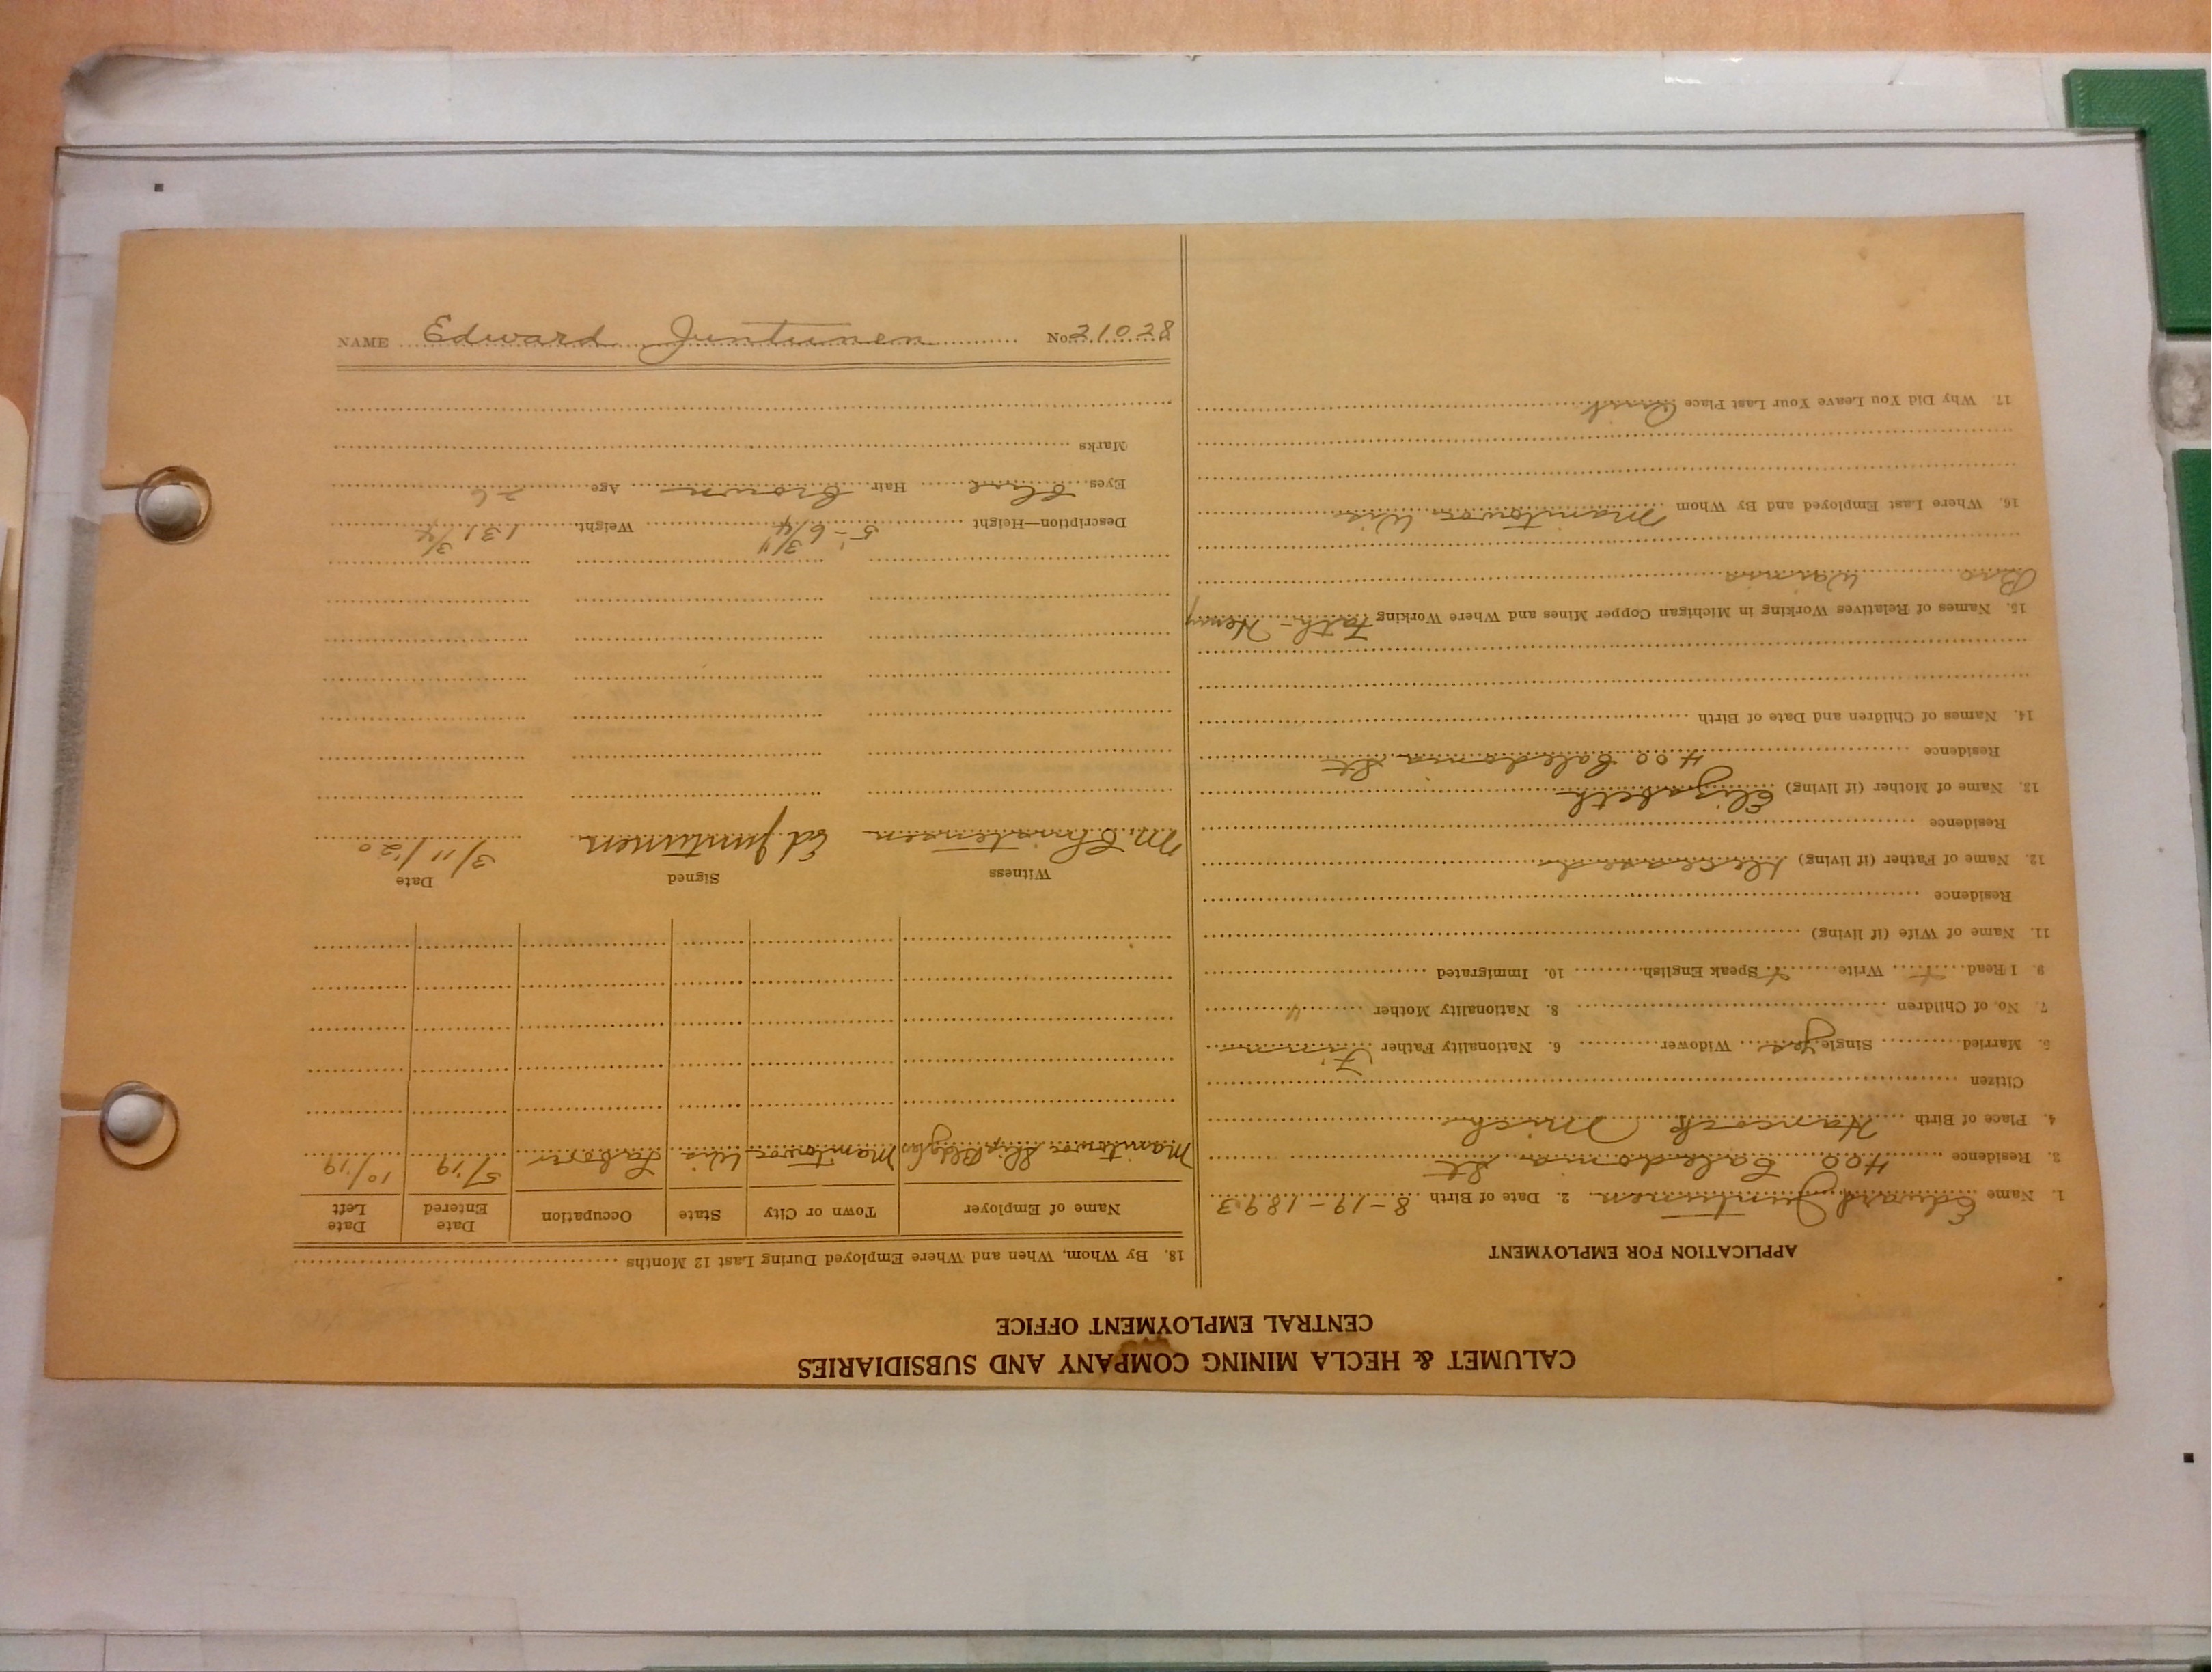 CALUMET & HECLA MINING COMPANY AND SUBSIDIARIES
CENTRAL EMPLOYMENT OFFICE
APPLICATION FOR EMPLOYMENT
1. Name Edward Juntunen 2. Date of Birth 8-19-1893
3. Residence 400 Caledonia St
4. Place of Birth Hancock Mich
Citizen
5. Married Single yes Widower 6. Nationality Father Finn
7. No. of Children 8. Nationality Mother "
9. I Read Write Speak English 10. Immigrated
11. Name of Wife (if living)
Residence
12. Name of Father (if living) deceased
Residence
13. Name of Mother (if living) Elizabeth
Residence 400 Caledonia St
14. Names of Children and Date of Birth
15. Names of Relatives Working in Michigan Copper Mines and Where Working Henry
Bro
16. Where Last Employed and By Whom Manitowoc Wis
17. Why Did You Leave Your Last Place Quit
18. By Whom, When and Where Employed During Last 12 Months
Name of Employer Town or City State Occupation Date Entered Date Left
Manitowoc Ship Manitowoc Wis Laborer 5/19 10/19
Witness Signed Date
M. Christensen Ed Juntunen 3/11/20
Description—Height 5'-6 3/4 Weight 131 3/4
Eyes Blue Hair Brown Age 26
Marks
NAME Edward Juntunen No. 21028